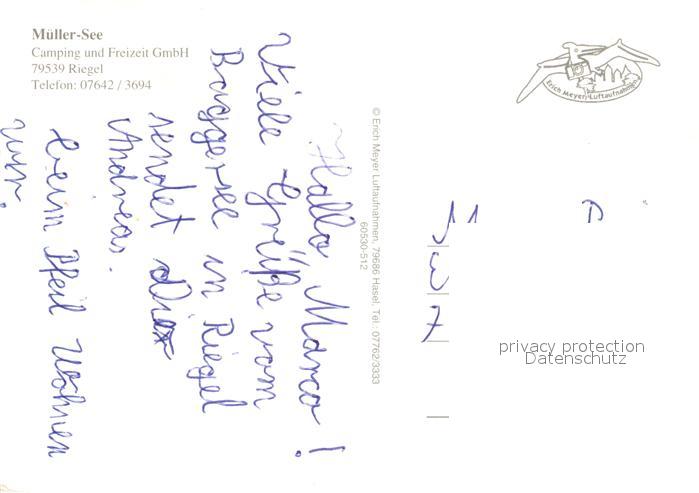 Müller-See
Camping und Freizeit GmbH
79539 Riegel
Telefon: 07642 / 3694
Erich Meyer-Luftaufnahmen
Hallo Marco!
Viele Grüße vom
Baggersee in Riegel
sendet dir
Andreas.
beim Pfeil Wohnen
wir.
© Erich Meyer Luftaufnahmen, 79686 Hasel, Tel.: 07762/3333
60530-512
D
7
privacy protection
Datenschutz